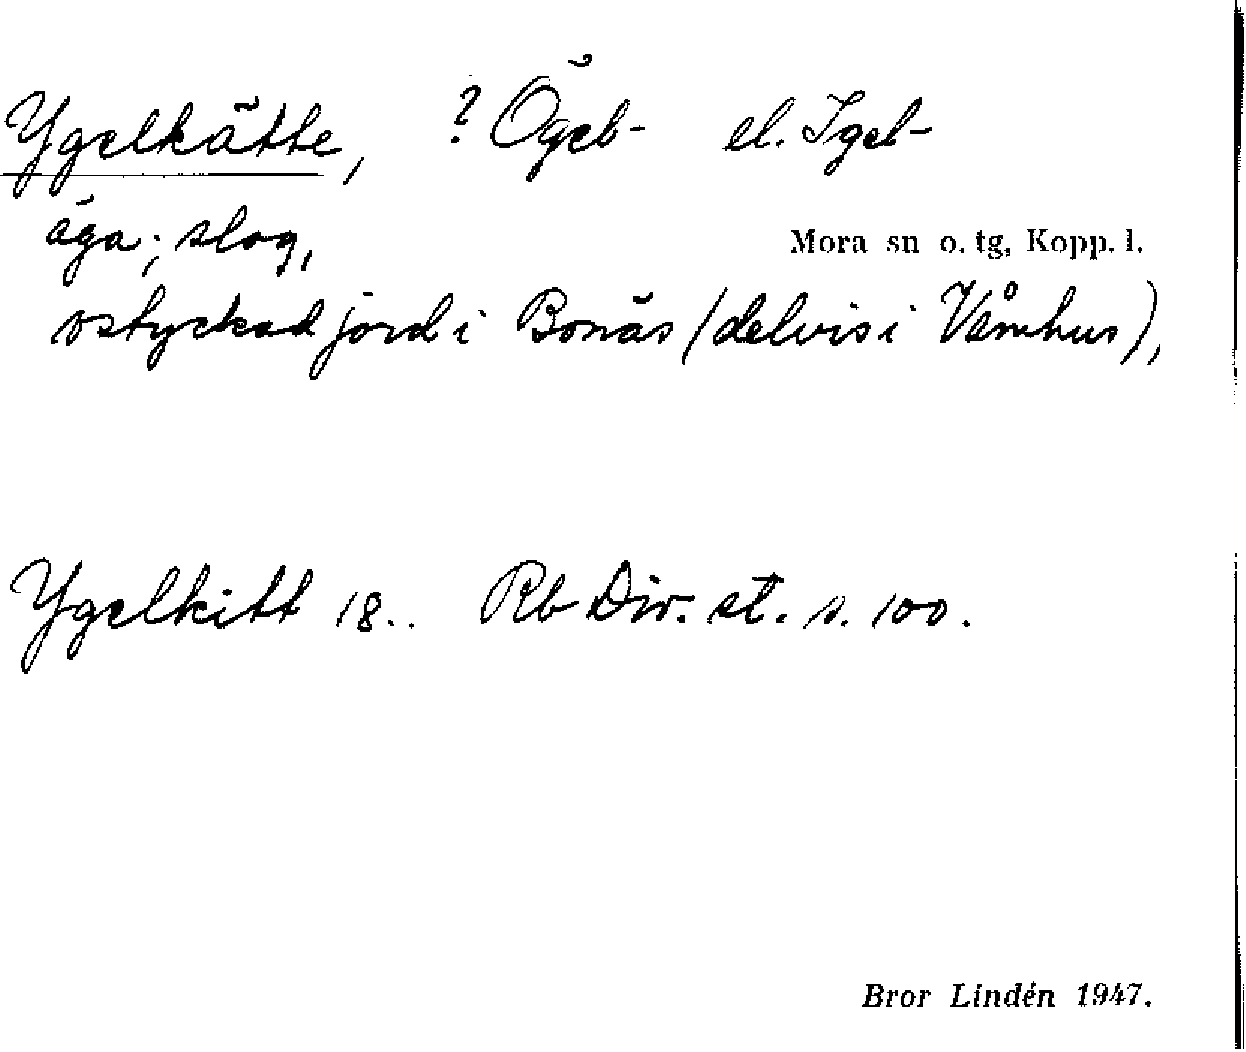 Ygelkätte, ? Ögel- el. Igel-
äga; slog,
Mora sn o. tg, Kopp. l.
ostyckad jord i Bonäs (delvis i Våmhus),
Ygelkitt 18.. Rb Div. st. s. 100.
Bror Lindén 1947.